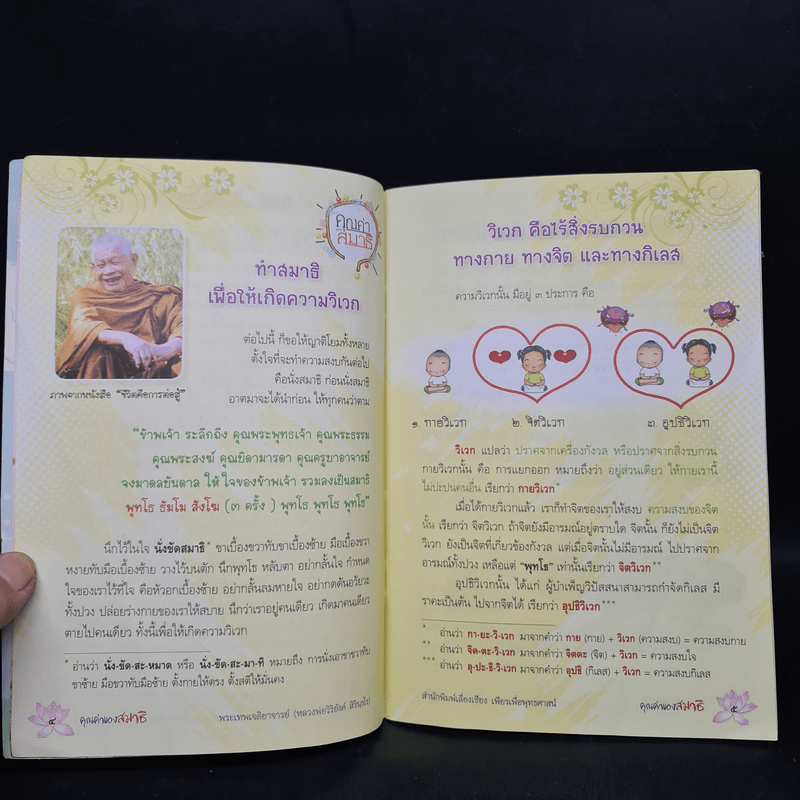 คุณค่า
สมาธิ
ทำสมาธิ
เพื่อให้เกิดความวิเวก
ต่อไปนี้ ก็ขอให้ญาติโยมทั้งหลาย
ตั้งใจที่จะทำความสงบกันต่อไป
คือนั่งสมาธิ ก่อนนั่งสมาธิ
อาตมาจะได้นำก่อน ให้ทุกคนว่าตาม
ภาพจากหนังสือ "ชีวิตคือการต่อสู้"
"ข้าพเจ้า ระลึกถึง คุณพระพุทธเจ้า คุณพระธรรม
คุณพระสงฆ์ คุณบิดามารดา คุณครูบาอาจารย์
จงมาดลบันดาล ให้ ใจของข้าพเจ้า รวมลงเป็นสมาธิ
พุทโธ ธัมโม สังโฆ (๓ ครั้ง ) พุทโธ พุทโธ พุทโธ"
นึกไว้ในใจ นั่งขัดสมาธิ* ขาเบื้องขวาทับขาเบื้องซ้าย มือเบื้องขวา
หงายทับมือเบื้องซ้าย วางไว้บนตัก นึกพุทโธ หลับตา อย่ากลั้นใจ กำหนด
ใจของเราไว้ที่ใจ คือหัวอกเบื้องซ้าย อย่ากลั้นลมหายใจ อย่ากดดันอวัยวะ
ทั้งปวง ปล่อยร่างกายของเราให้สบาย นึกว่าเราอยู่คนเดียว เกิดมาคนเดียว
ตายไปคนเดียว ทั้งนี้เพื่อให้เกิดความวิเวก
* อ่านว่า นั่ง-ขัด-สะ-หมาด หรือ นั่ง-ขัด-สะ-มา-ทิ หมายถึง การนั่งเอาขาขวาทับ
ขาซ้าย มือขวาทับมือซ้าย ตั้งกายให้ตรง ตั้งสติให้มั่นคง
๔ คุณค่าของสมาธิ พระเทพเจติยาจารย์ (หลวงพ่อวิริยังค์ สิรินฺธโร)
วิเวก คือไร้สิ่งรบกวน
ทางกาย ทางจิต และทางกิเลส
ความวิเวกนั้น มีอยู่ ๓ ประการ คือ
๑. กายวิเวก ๒. จิตวิเวก ๓. อุปธิวิเวก
วิเวก แปลว่า ปราศจากเครื่องกังวล หรือปราศจากสิ่งรบกวน
กายวิเวกนั้น คือ การแยกออก หมายถึงว่า อยู่ส่วนเดียว ให้กายเรานี้
ไม่ปะปนคนอื่น เรียกว่า กายวิเวก*
เมื่อได้กายวิเวกแล้ว เราก็ทำจิตของเราให้สงบ ความสงบของจิต
นั้น เรียกว่า จิตวิเวก ถ้าจิตยังมีอารมณ์อยู่ตราบใด จิตนั้น ก็ยังไม่เป็นจิต
วิเวก ยังเป็นจิตที่เกี่ยวข้องกังวล แต่เมื่อจิตนั้นไม่มีอารมณ์ ไปปราศจาก
อารมณ์ทั้งปวง เหลือแต่ "พุทโธ" เท่านั้นเรียกว่า จิตวิเวก**
อุปธิวิเวกนั้น ได้แก่ ผู้บำเพ็ญวิปัสสนาสามารถกำจัดกิเลส มี
ราคะเป็นต้น ไปจากจิตได้ เรียกว่า อุปธิวิเวก***
* อ่านว่า กา-ยะ-วิ-เวก มาจากคำว่า กาย (กาย) + วิเวก (ความสงบ) = ความสงบกาย
** อ่านว่า จิต-ตะ-วิ-เวก มาจากคำว่า จิตตะ (จิต) + วิเวก = ความสงบใจ
*** อ่านว่า อุ-ปะ-ธิ-วิ-เวก มาจากคำว่า อุปธิ (กิเลส) + วิเวก = ความสงบกิเลส
สำนักพิมพ์เลี่ยงเชียง เพียรเพื่อพุทธศาสน์ คุณค่าของสมาธิ ๕